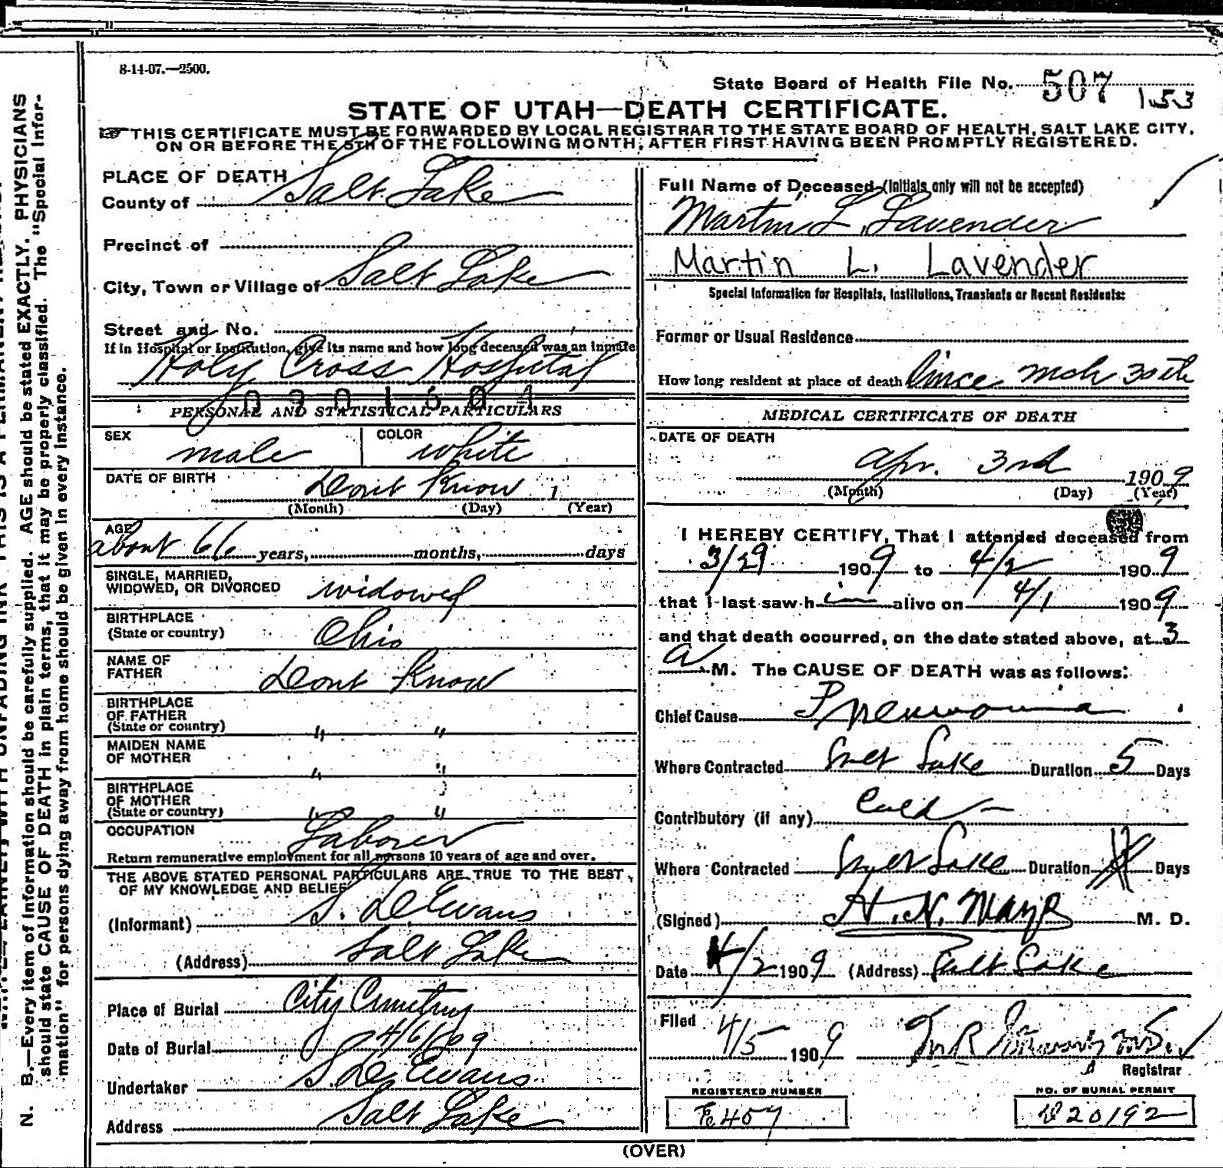 8-14-07.—2500.
State Board of Health File No. 507 153
STATE OF UTAH—DEATH CERTIFICATE.
THIS CERTIFICATE MUST BE FORWARDED BY LOCAL REGISTRAR TO THE STATE BOARD OF HEALTH, SALT LAKE CITY,
ON OR BEFORE THE 5TH OF THE FOLLOWING MONTH, AFTER FIRST HAVING BEEN PROMPTLY REGISTERED.
PLACE OF DEATH
County of Salt Lake
Precinct of
City, Town or Village of Salt Lake
Street and No.
If in Hospital or Institution, give its name and how long deceased was an inmate
Holy Cross Hospital
0901604
PERSONAL AND STATISTICAL PARTICULARS
SEX male COLOR white
DATE OF BIRTH Dont Know 1
(Month) (Day) (Year)
AGE about 66 years, months, days
SINGLE, MARRIED,
WIDOWED, OR DIVORCED widowed
BIRTHPLACE
(State or country) Ohio
NAME OF
FATHER Dont Know
BIRTHPLACE
OF FATHER
(State or country) " "
MAIDEN NAME
OF MOTHER " "
BIRTHPLACE
OF MOTHER
(State or country) " "
OCCUPATION Laborer
Return remunerative employment for all persons 10 years of age and over.
THE ABOVE STATED PERSONAL PARTICULARS ARE TRUE TO THE BEST
OF MY KNOWLEDGE AND BELIEF
(Informant) S. D. Evans
(Address) Salt Lake
Place of Burial City Cemetery
Date of Burial 4/6/09
Undertaker S. D. Evans
Address Salt Lake
Full Name of Deceased (Initials only will not be accepted)
Martin L. Lavender
Martin L. Lavender
Special Information for Hospitals, Institutions, Transients or Recent Residents:
Former or Usual Residence
How long resident at place of death Since Mch 30th
MEDICAL CERTIFICATE OF DEATH
DATE OF DEATH
Apr. 3rd 1909
(Month) (Day) (Year)
I HEREBY CERTIFY, That I attended deceased from
3/29 1909 to 4/2 1909
that I last saw him alive on 4/1 1909
and that death occurred, on the date stated above, at 3
a M. The CAUSE OF DEATH was as follows:
Chief Cause Pneumonia
Where Contracted Salt Lake Duration 5 Days
Contributory (if any) Cold
Where Contracted Salt Lake Duration Days
(Signed) H. N. Mayo M. D.
Date 4/2 1909 (Address) Salt Lake
Filed 4/5 1909
Registrar
REGISTERED NUMBER
E407
NO. OF BURIAL PERMIT
20192
(OVER)
N. B.—Every item of information should be carefully supplied. AGE should be stated EXACTLY. PHYSICIANS
should state CAUSE OF DEATH in plain terms, that it may be properly classified. The "Special Infor-
mation" for persons dying away from home should be given in every instance.